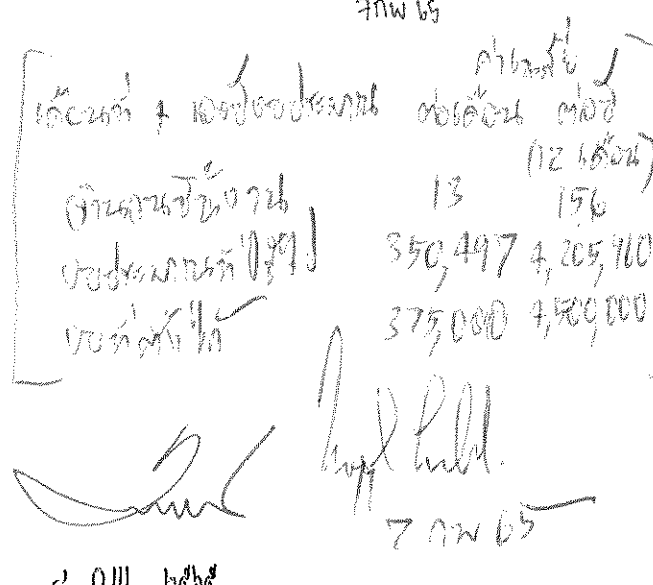 7 กพ 65
ค่าเฉลี่ย
เดือนที่ 4 ของปีงบประมาณ ต่อเดือน ต่อปี
(12 เดือน)
จำนวนชิ้นงาน 13 156
งบประมาณที่ใช้ไป 350,497 4,205,960
งบที่ตั้งไว้ 375,000 4,500,000
7 กพ 65